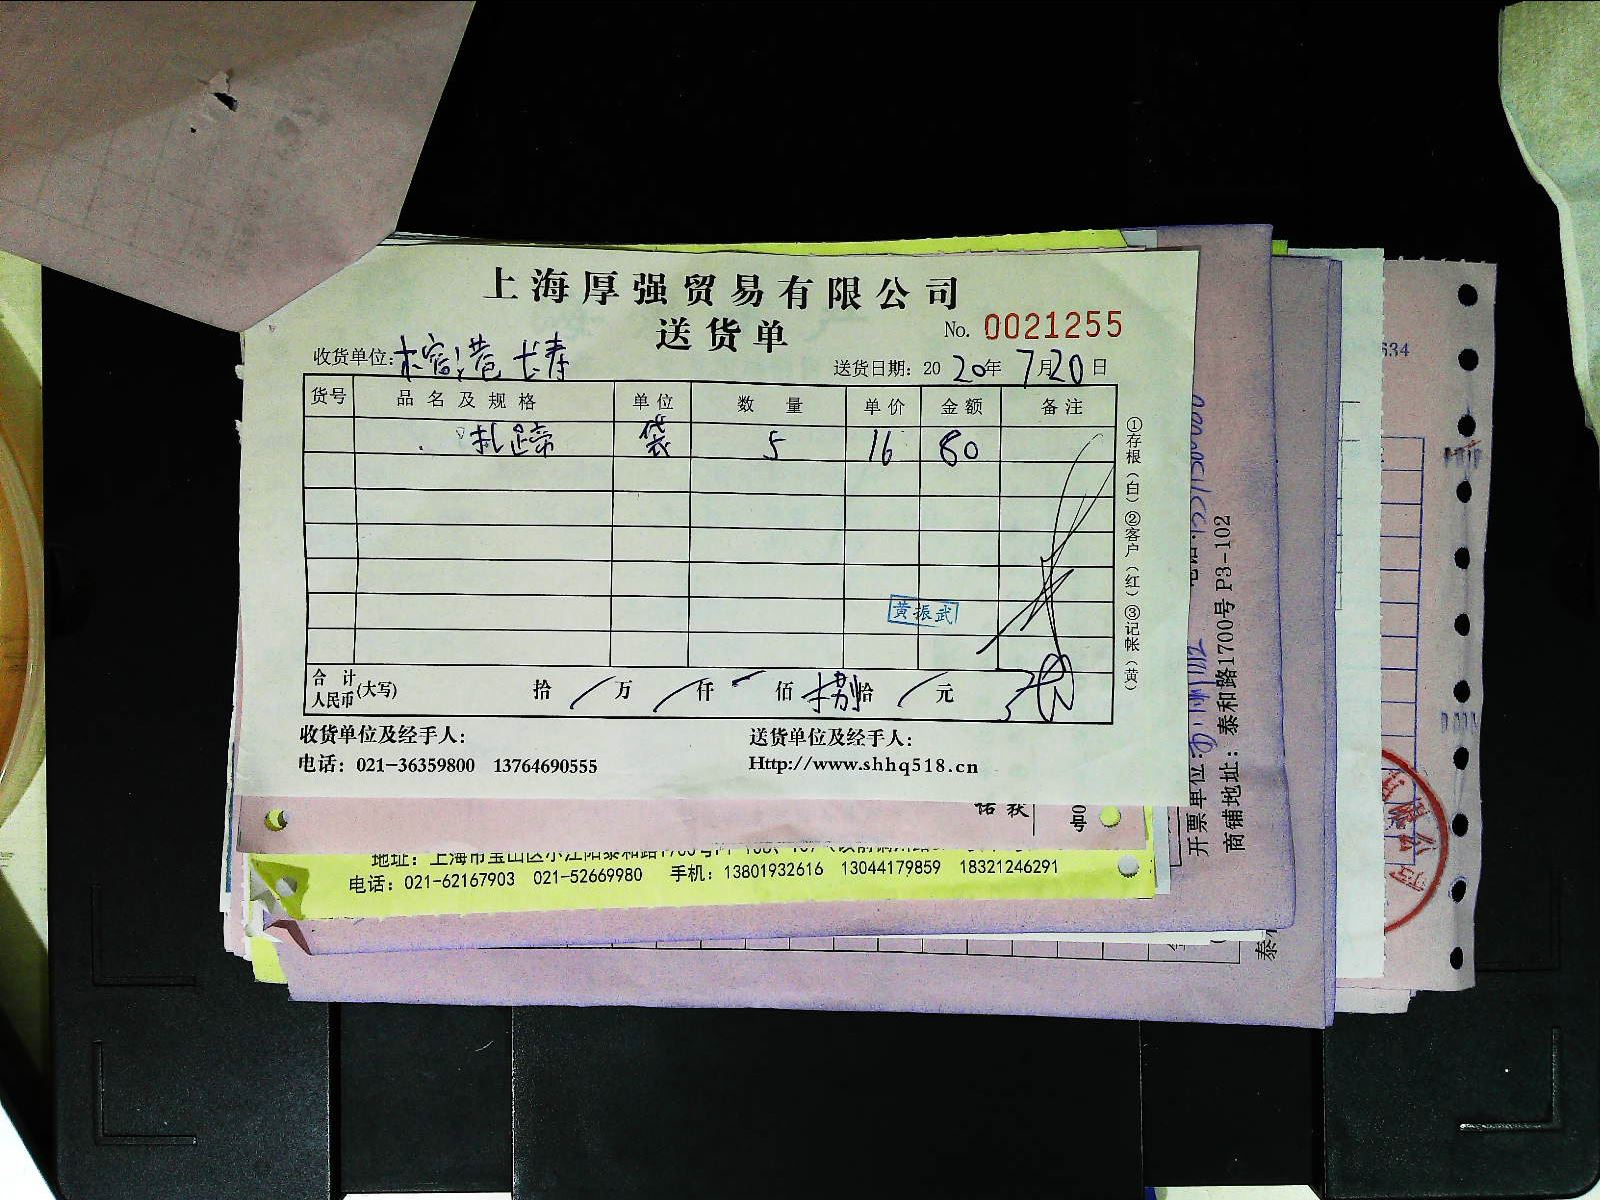 上海厚强贸易有限公司
送货单
No. 0021255
收货单位:榕港 长寿
送货日期: 2020年7月20日
货号 品名及规格 单位 数量 单价 金额 备注
扎蹄 袋 5 16 80
黄振武
合计人民币(大写) 拾 万 仟 佰 捌拾 元
①存根(白)②客户(红)③记帐(黄)
收货单位及经手人: 送货单位及经手人:
电话: 021-36359800 13764690555 Http://www.shhq518.cn
电话: 021-62167903 021-52669980 手机: 13801932616 13044179859 18321246291
开票单位:
商铺地址: 泰和路1700号 P3-102
634